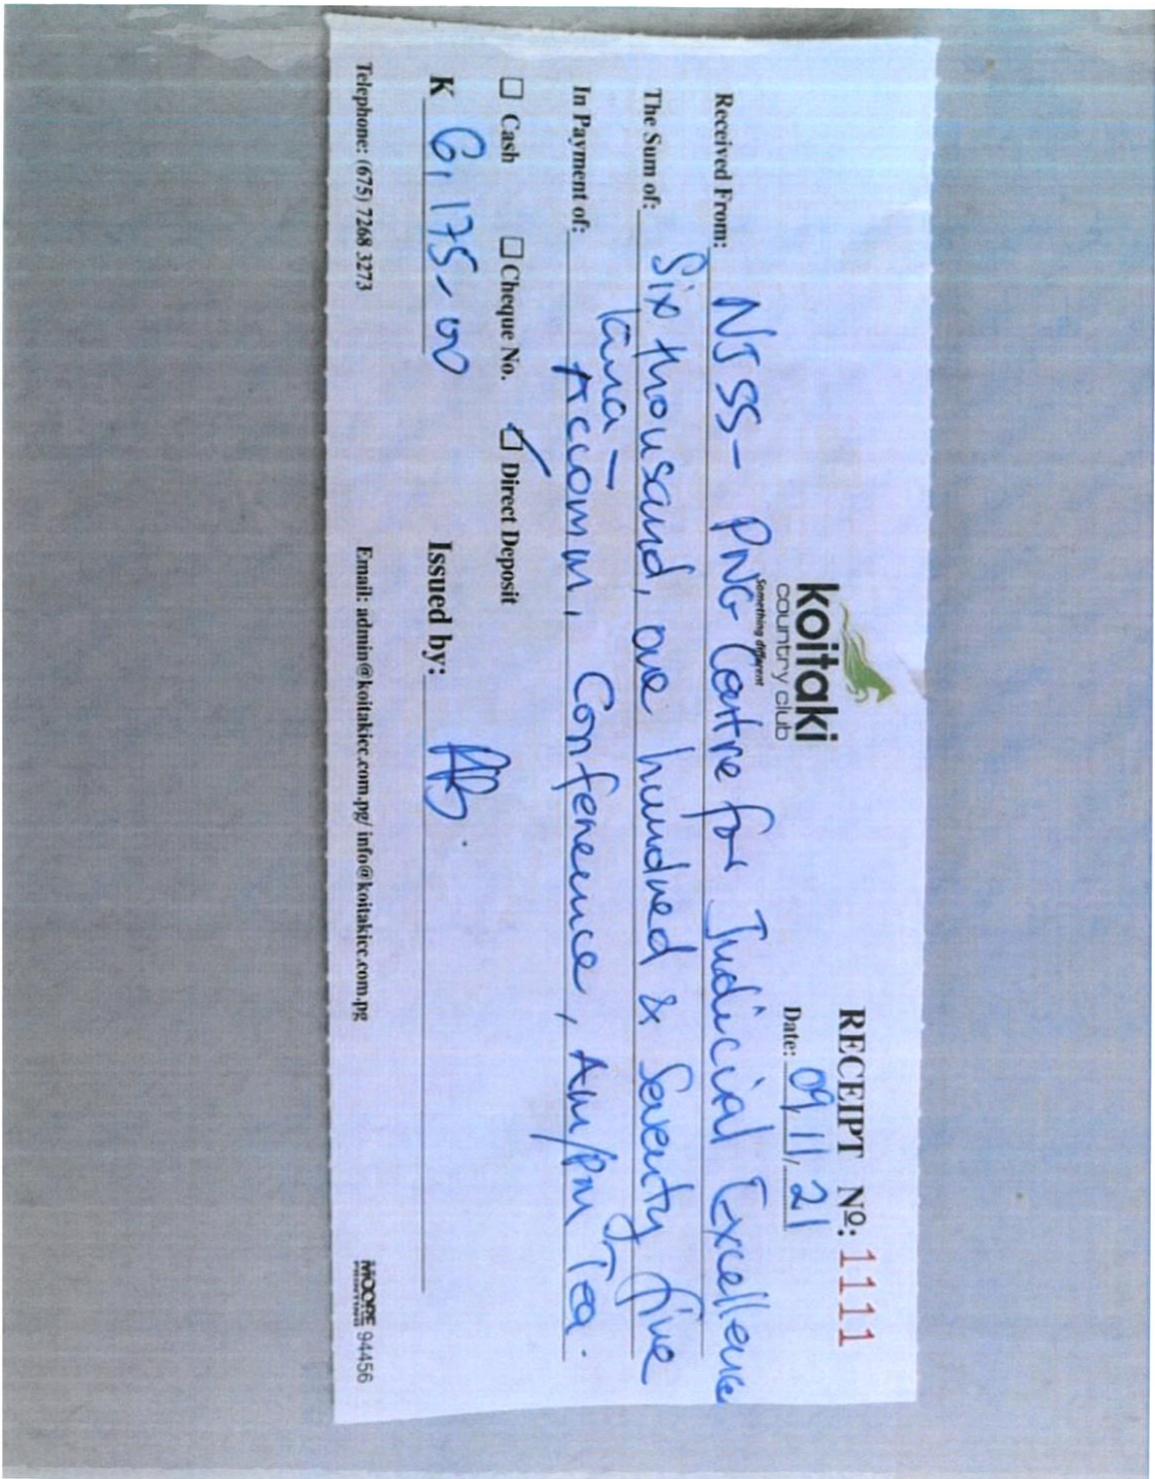 koitaki
country club
Something different
RECEIPT Nº: 1111
Date: 09/11/21
Received From: NJSS - PNG Centre for Judicial Excellence
The Sum of: Six thousand, one hundred & Seventy five
kina -
In Payment of: Accomm, Conference, Am/Pm Tea.
Cash Cheque No. Direct Deposit
K 6,175-00 Issued by:
Telephone: (675) 7268 3273 Email: admin@koitakicc.com.pg/ info@koitakicc.com.pg
MOORE PRINTING 94456